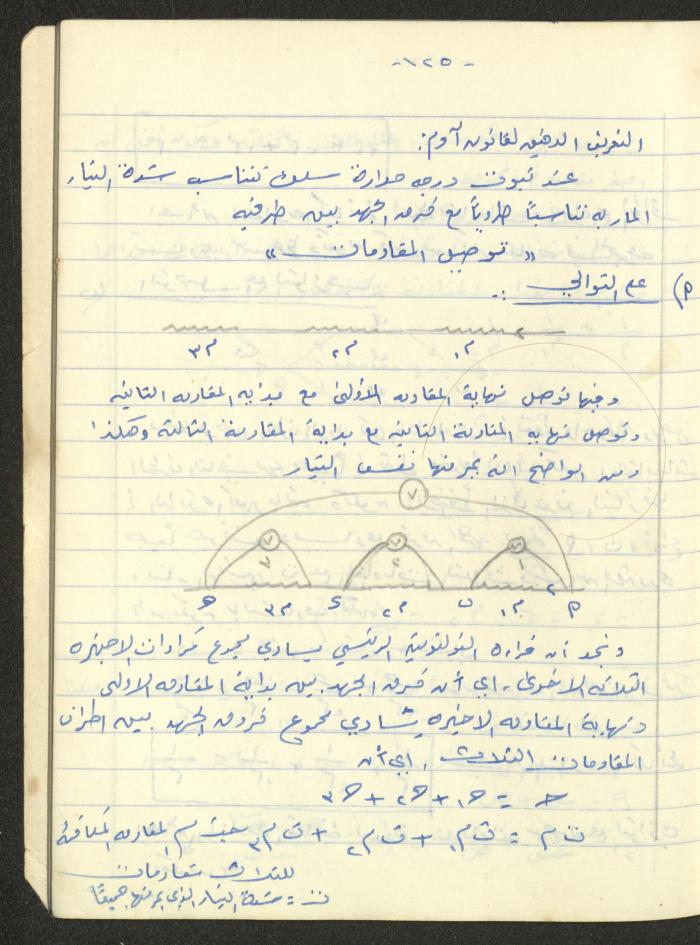 -١٢٥-
التعريف الدقيق لقانون آوم:
عند ثبوت درجه حرارة سلك تتناسب شدة التيار
المار به تناسباً طردياً مع فرق الجهد بين طرفيه
« توصيل المقاومات »
م) على التوالي :
م١ م٢ م٣
وفيها توصل نهاية المقاومه الاولى مع بدايه المقاومه الثانيه
وتوصل نهايه المقاومة الثانيه مع بداية المقاومة الثالثة وهكذا
ومن الواضح انه يمر فيها نفس التيار
٧
٧ ٧ ٧
١ ٢ ٣
م م١ ب م٢ د م٣ هـ
ونجد أن قراءه الفولتوميتر الرئيسي يساوي مجموع قراءات الاجهزه
الثلاثه الاخرى ، اي أن فرق الجهد بين بداية المقاومه الاولى
ونهاية المقاومه الاخيره يساوي مجموع فروق الجهد بين اطراف
المقاومات الثلاث ، اي أن
حـ = حـ١ + حـ٢ + حـ٣
ت م = ت م١ + ت م٢ + ت م٣ حيث م المقاومه المكافئة
للثلاث مقاومات
ت = شدة التيار الذي يمر فيها جميعًا